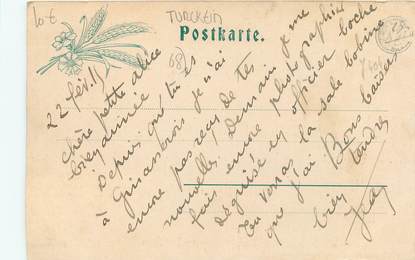 10 €
TURCKEIM
(68)
Postkarte.
22 fév. 19
chère petite alice
bien aimée
Depuis que tu es
à je n'ai
encore pas reçu de tes
nouvelles. Demain je me
fais encore photographier
déguisé en officier boche
Tu verras la sale bobine
que j'ai Bons
bien tendres
baisers